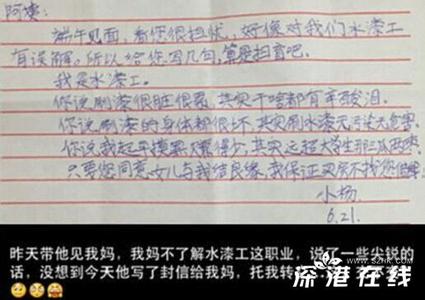 阿姨:
端午见面,看您很担忧,好像对我们水漆工
有误解。所以给您写几句,算是扫盲吧。
我是水漆工。
你说刷漆很脏很累,其实干啥都有辛酸泪。
你说刷漆的身体都很坏,其实刷水漆无污染无危害。
你说我起早摸黑 得少,其实远超大学生那三瓜两枣
只要您同意女儿与我结良缘,我保证买房不找您借
小杨
6.21.
昨天带他见我妈,我妈不了解水漆工这职业,说了一些尖锐的
话,没想到今天他写了封信给我妈,托我转
深港在线